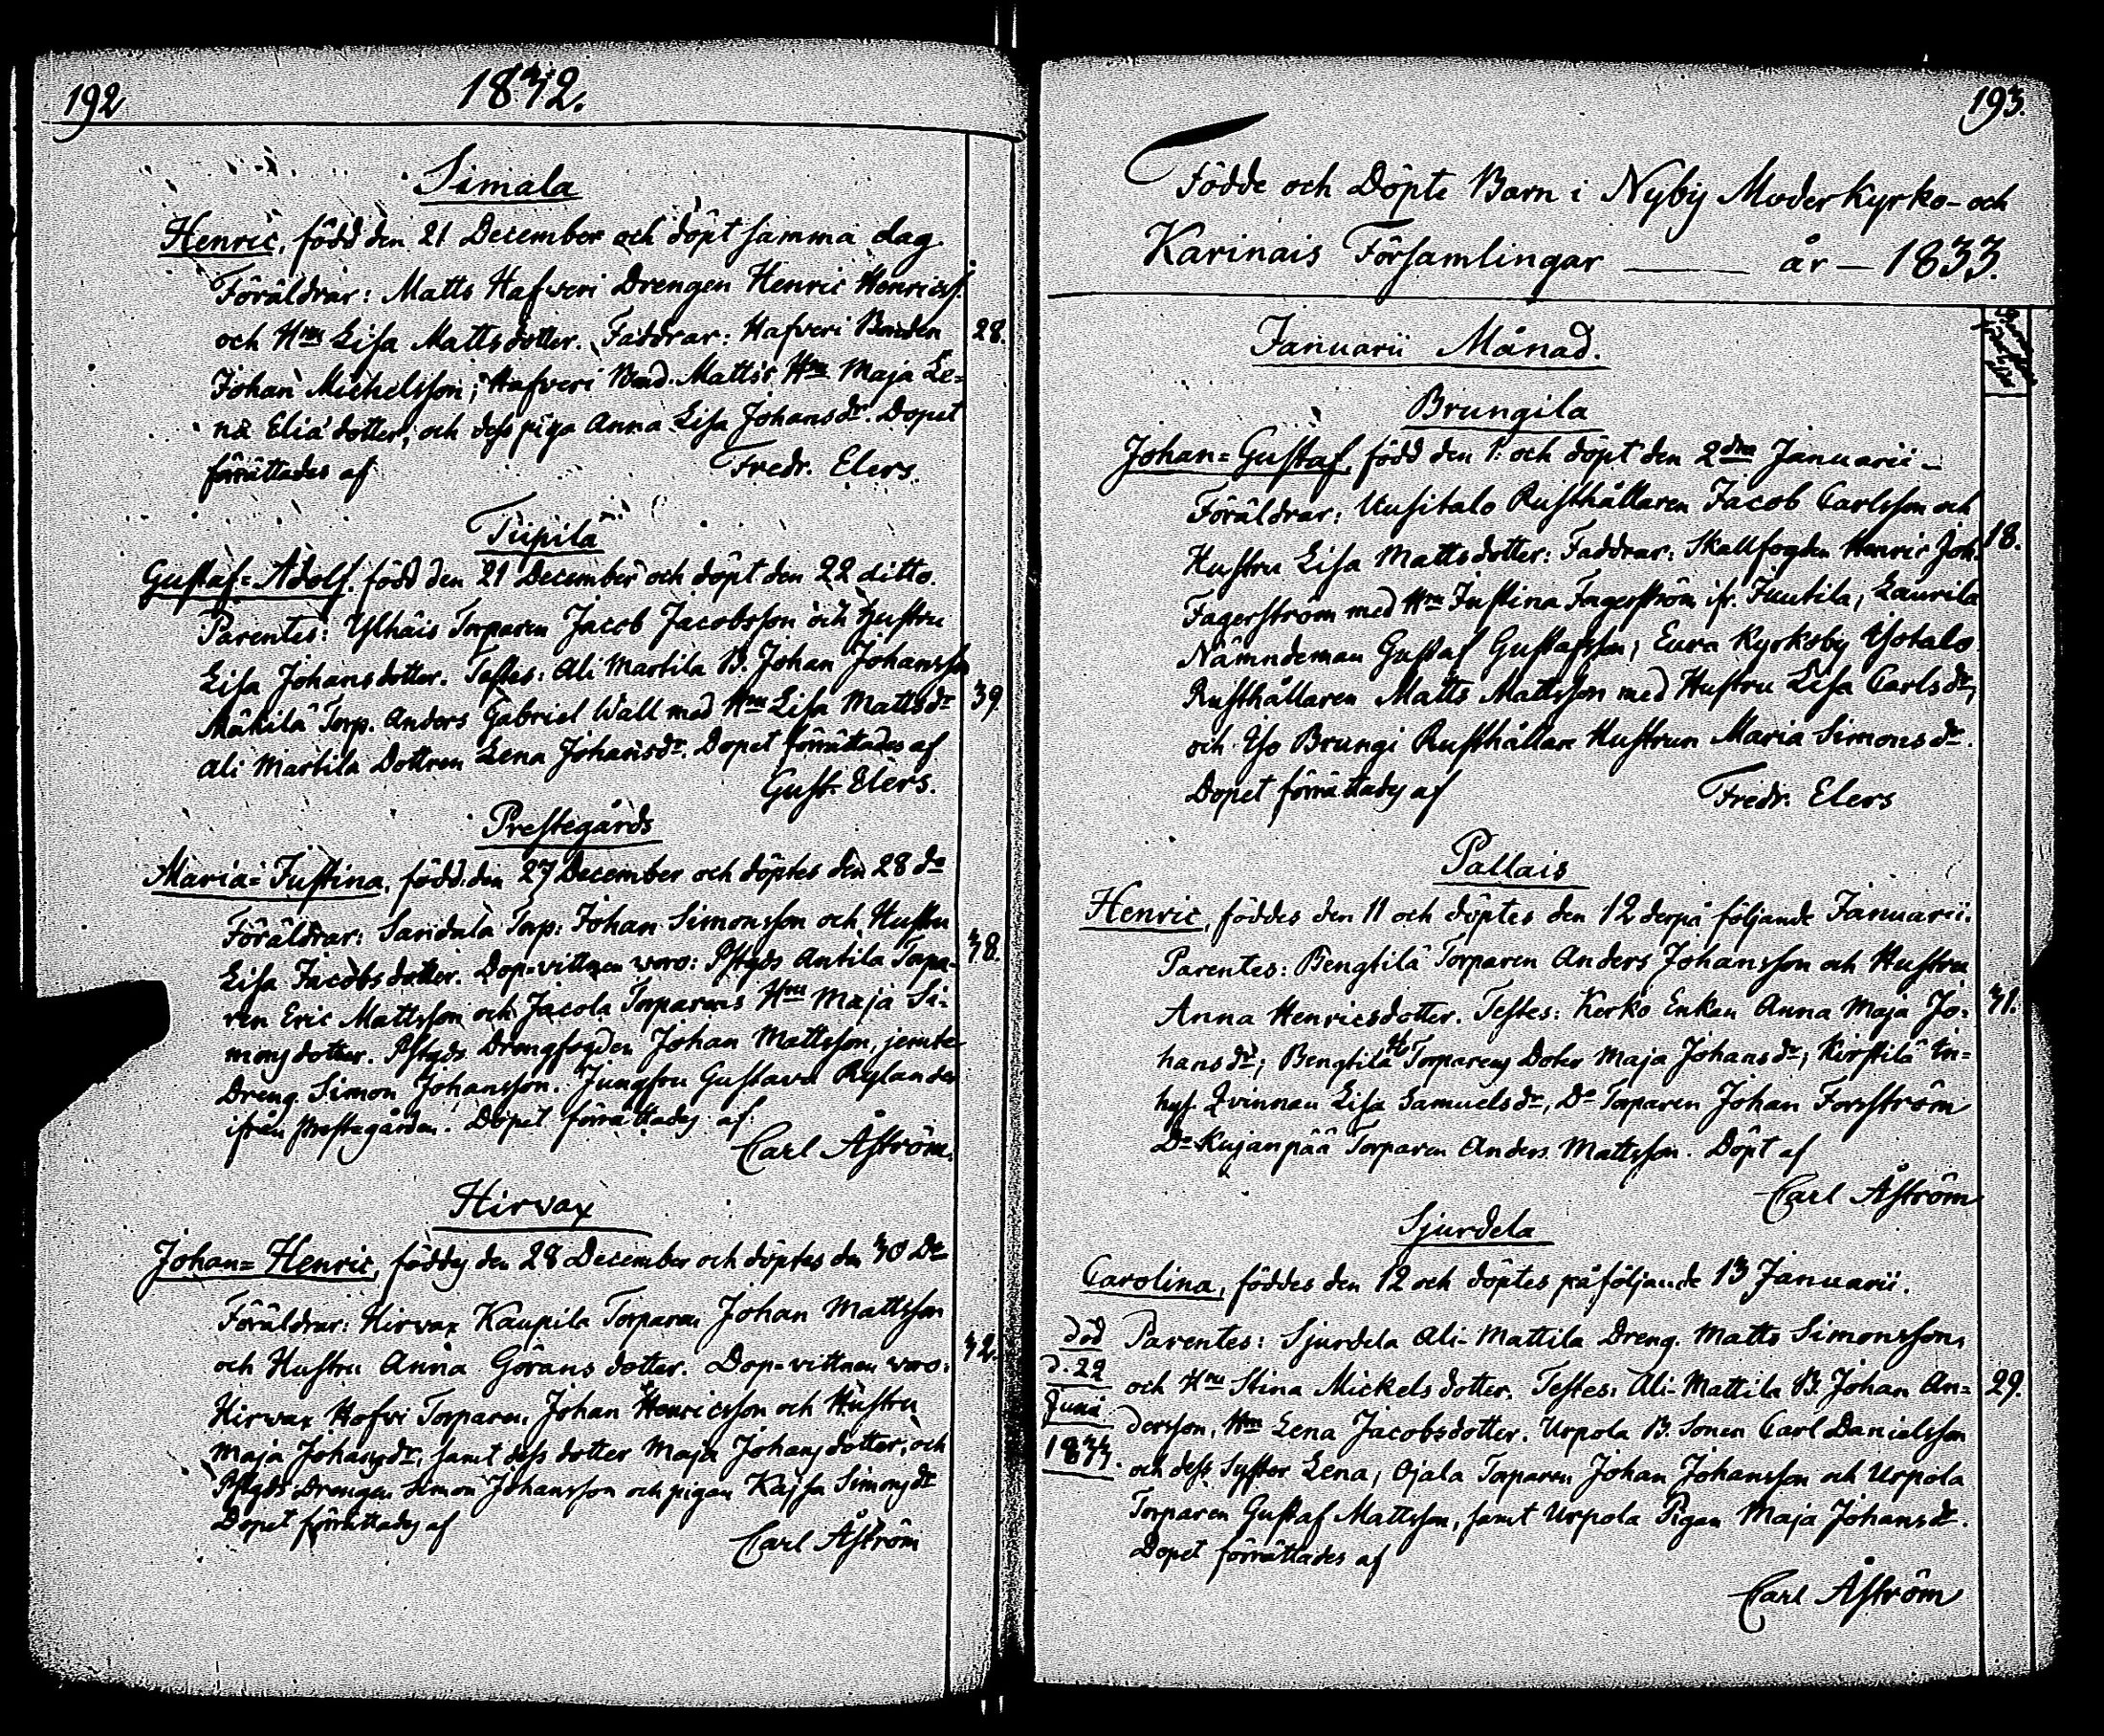 192
1832.
Simala
Henric, född den 21 December och döpt samma dag.
Föräldrar: Matts Hafveri Drengen Henric Henricss.
och Hru Lisa Mattsdotter. Faddrar: Hafveri Bonden
28.
Johan Michelsson; Hafveri Bond. Matts's Hru Maja Le=
na Elia dotter; och dess piga Anna Lisa Johansdr. Dopet
förrättades af
Fredr. Elers.
Tiipilä
Gustaf=Adolf. född den 21 December och döpt den 22 ditto.
Parentes: Ylhäis Torparen Jacob Jacobsson och Hustru
Lisa Johansdotter. Testes: Ali Martila B. Johan Johansson
Mäkilä Torp. Anders Gabriel Wall med Hru Lisa Mattsdr
39.
Ali Martila Dottren Lena Johansdr. Dopet förrättades af
Gust. Elers.
Prestegårds
Maria=Justina, född den 27 December och döptes den 28 do
Föräldrar: Sandula Torp: Johan Simonsson och Hustru
Lisa Jacobsdotter. Dop=vittnen woro: Pstgds Antila Torpa=
38.
ren Eric Mattsson och Jacola Torparens Hru Maja Si=
monsdotter. Pstgds Drengfogden Johan Mattsson, jemte
Dreng. Simon Johansson. Jungfru Gustava Rylander
ifrån Prestegården. Dopet förrättades af
Carl Åström.
Hirvax
Johan=Henric, föddes den 28 December och döptes den 30 Do
Föräldrar: Hirvax Kaupila Torparen Johan Mattsson
och Hustru Anna Görans dotter. Dop=vittnen woro:
32.
Hirvax Hofvi Torparen Johan Henricsson och Hustru
Maja Johansdr, samt dess dotter Maja Johansdotter, och
Pstgds Drengen Simon Johansson och pigan Kajsa Simonsdr
Dopet förrättades af
Carl Åström
193.
Födde och Döpte Barn i Nyby Moderkyrko- och
Karinais Församlingar ——— år — 1833.
Januarii Månad.
Brungila
Johan=Gustaf, född den 1. och döpt den 2dra Januarii —
Föräldrar: Uusitalo Rusthållaren Jacob Carlsson och
Hustru Lisa Mattsdotter: Faddrar: Skallfogden Henric Joh.
18.
Fagerström med Hru Justina Fagerström ifr. Juutila; Laurila
Nämndeman Gustaf Gustafsson; Eura Kyrkoby Ysotalo
Rusthållaren Matts Mattsson med Hustru Lisa Carlsdr,
och Yso Brungi Rusthållare Hustrun Maria Simonsdr.
Dopet förrättades af
Fredr. Elers
Pallais
Henric, föddes den 11 och döptes den 12 derpå följande Januarii.
Parentes: Bengtilä Torparen Anders Johansson och Hustru
Anna Henricsdotter. Testes: Kerko Enkan Anna Maja Jo=
31.
hansdr; Bengtilä Torparens Doter Maja Johansdr; Kirstilä In=
hys. Qvinnan Lisa Samuelsdr, Do Torparen Johan Forsström
Do Kujanpää Torparen Anders Mattsson. Döpt af
Carl Åström
Sjurdela
Carolina, föddes den 12 och döptes påföljande 13 Januarii.
död
d. 22
Junii
1833.
Parentes: Sjurdela Ali-Mattila Dreng. Matts Simonsson,
och Hru Stina Mickels dotter. Testes: Ali-Mattila B. Johan An=
29.
dersson, Hru Lena Jacobsdotter. Urpola B. Sonen Carl Danielsson
och dess Syster Lena; Ojala Torparen Johan Johansson och Urpola
Torparen Gustaf Mattsson, samt Urpola Pigan Maja Johansdr.
Dopet förrättades af
Carl Åström